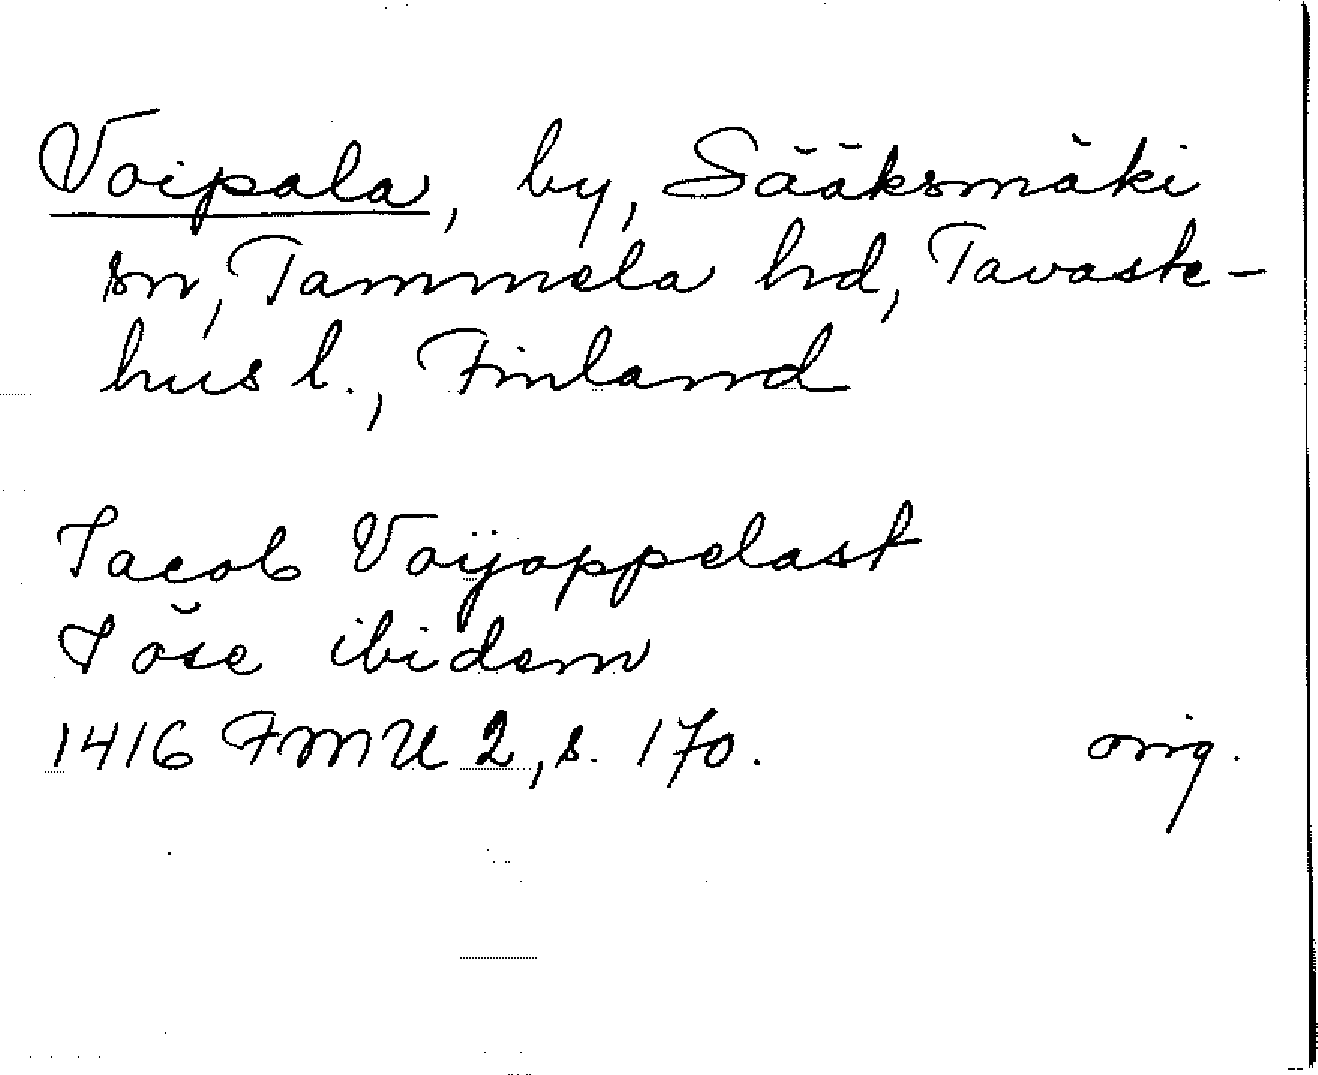 Voipala, by, Sääksmäki
sn, Tammela hd, Tavaste-
hus l., Finland
Jacob Voijoppelast
Jöse ibidem
1416 FMU 2, s. 170. orig.